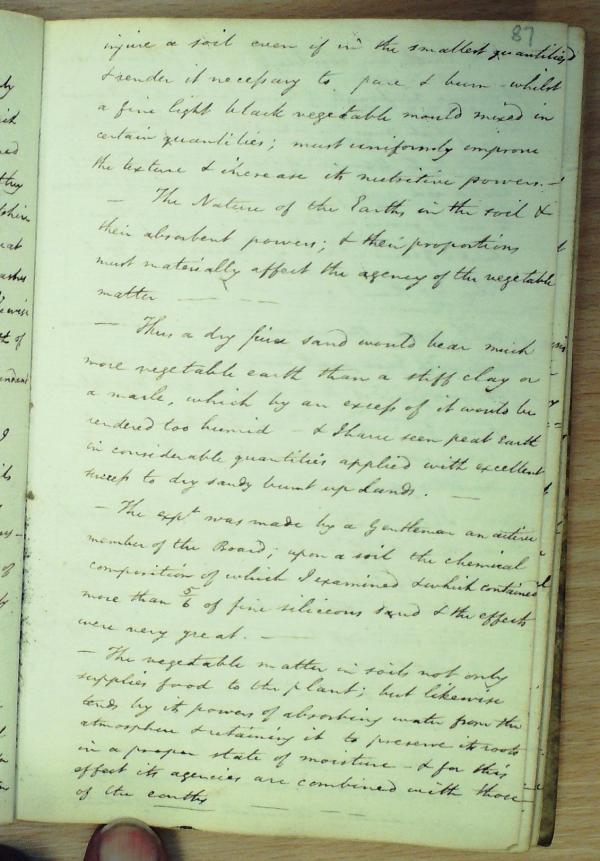 87
injure a soil even if in the smallest quantities
& render it necessary to pare & burn - whilst
a fine light black vegetable mould mixed in
certain quantities; must uniformly improve
the texture & increase its nutritive powers. -
- The Nature of the Earths in the soil &
their absorbent powers; & their proportions
must materially affect the agency of the vegetable
matter - - -
- Thus a dry fine sand would bear much
more vegetable earth than a stiff clay or
a marle, which by an excess of it would be
rendered too humid - & I have seen peat Earth
in considerable quantities applied with excellent
success to dry sandy burnt up Lands. -
- The expt was made by a Gentleman an active
member of the Board; upon a soil the chemical
composition of which I examined & which contained
more than 5/6 of fine siliceous sand & the effects
were very great. -
- The vegetable matter in soils not only
supplies food to the plant; but likewise
tends by its powers of absorbing water from the
atmosphere & retaining it to preserve its roots
in a proper state of moisture - & for this
effect its agencies are combined with those
of the earths